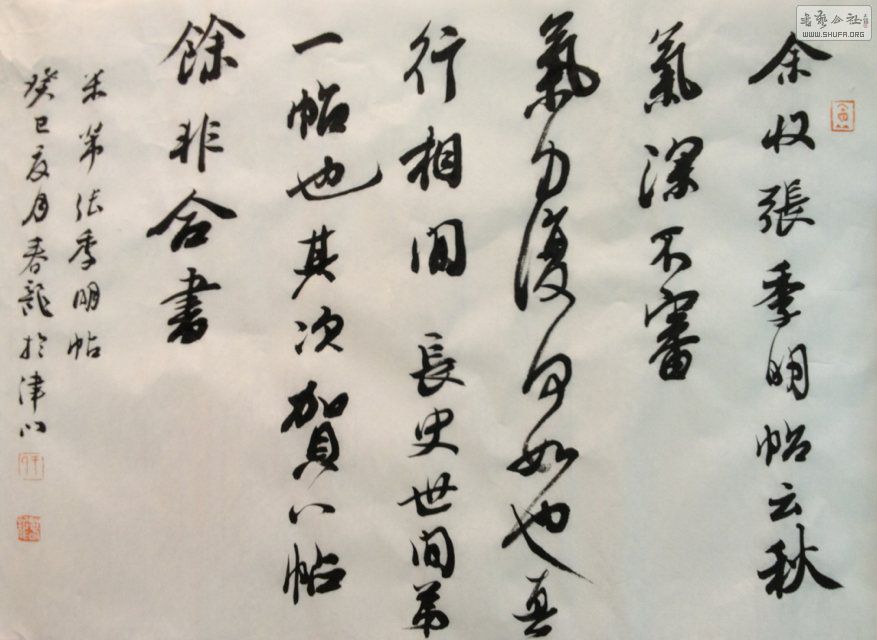 余收張季明帖云秋
氣深不審
氣力復何如也真
行相間長史世間第
一帖也其次賀八帖
餘非合書
米芾張季明帖
癸巳夏月春龍於津门
書法公社
WWW.SHUFA.ORG